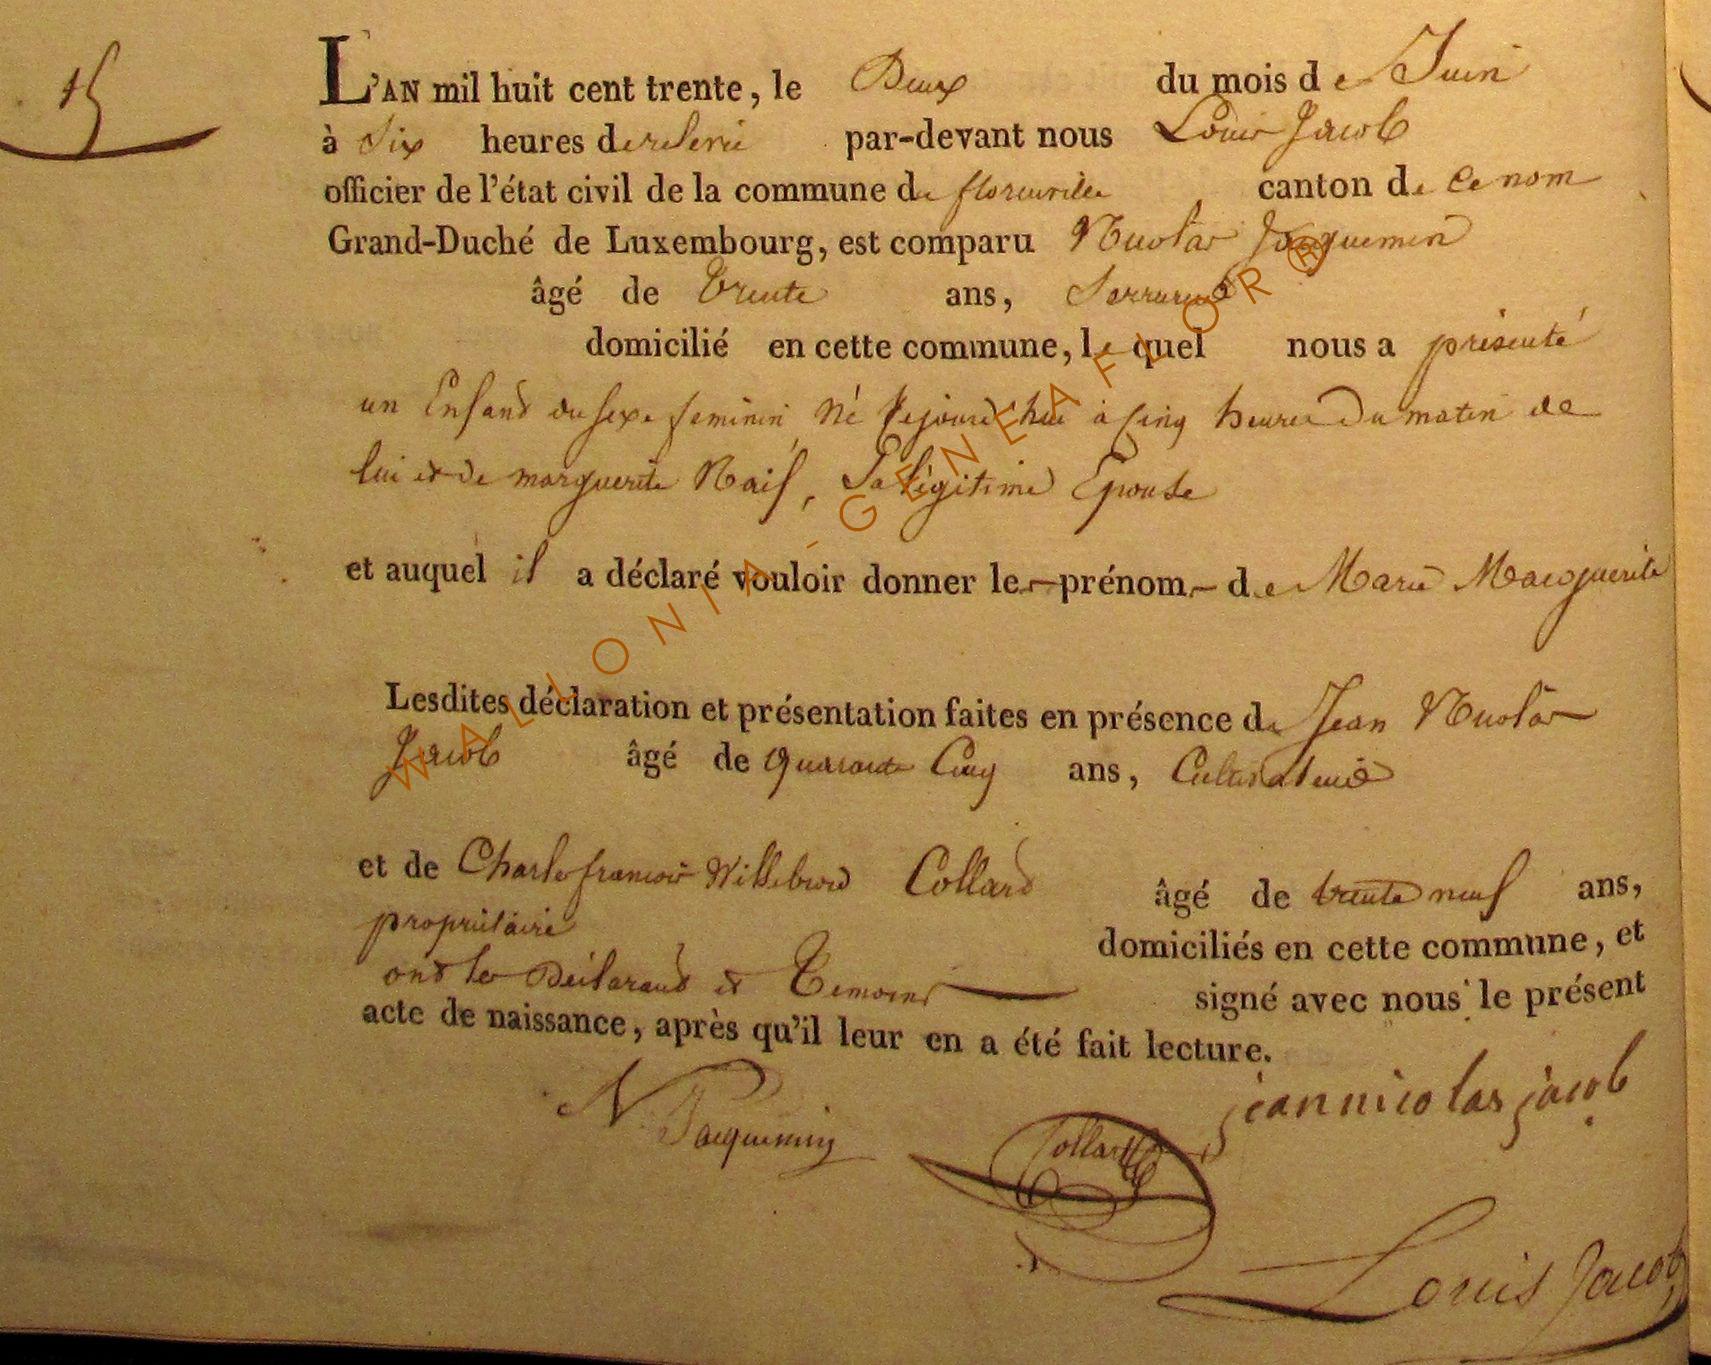 15
L'AN mil huit cent trente, le Deux du mois de Juin
à Six heures de relevée par-devant nous Louis Jacob
officier de l'état civil de la commune de florenville canton de Ce nom
Grand-Duché de Luxembourg, est comparu Nicolas Jacquemin
âgé de Trente ans, Serrurier
domicilié en cette commune, le quel nous a présenté
un Enfand du sexe feminin, Né cejourd'hui à Cinq heures Du matin de
lui et de marguerite Naif, Sa légitime Epouse
et auquel il a déclaré vouloir donner le prénom de Marie Marguerite
Lesdites déclaration et présentation faites en présence de Jean Nicolas
Jacob âgé de quarante Cinq ans, Cultivateur
et de Charles françois Willebrord Collard âgé de trente neuf ans,
propriétaire domiciliés en cette commune, et
ont les Déclarand et Temoins signé avec nous le présent
acte de naissance, après qu'il leur en a été fait lecture.
N Jacquemin
jean nicolas jacob
Collard
Louis Jacob
WALLONIA - GENEAFLOR ®